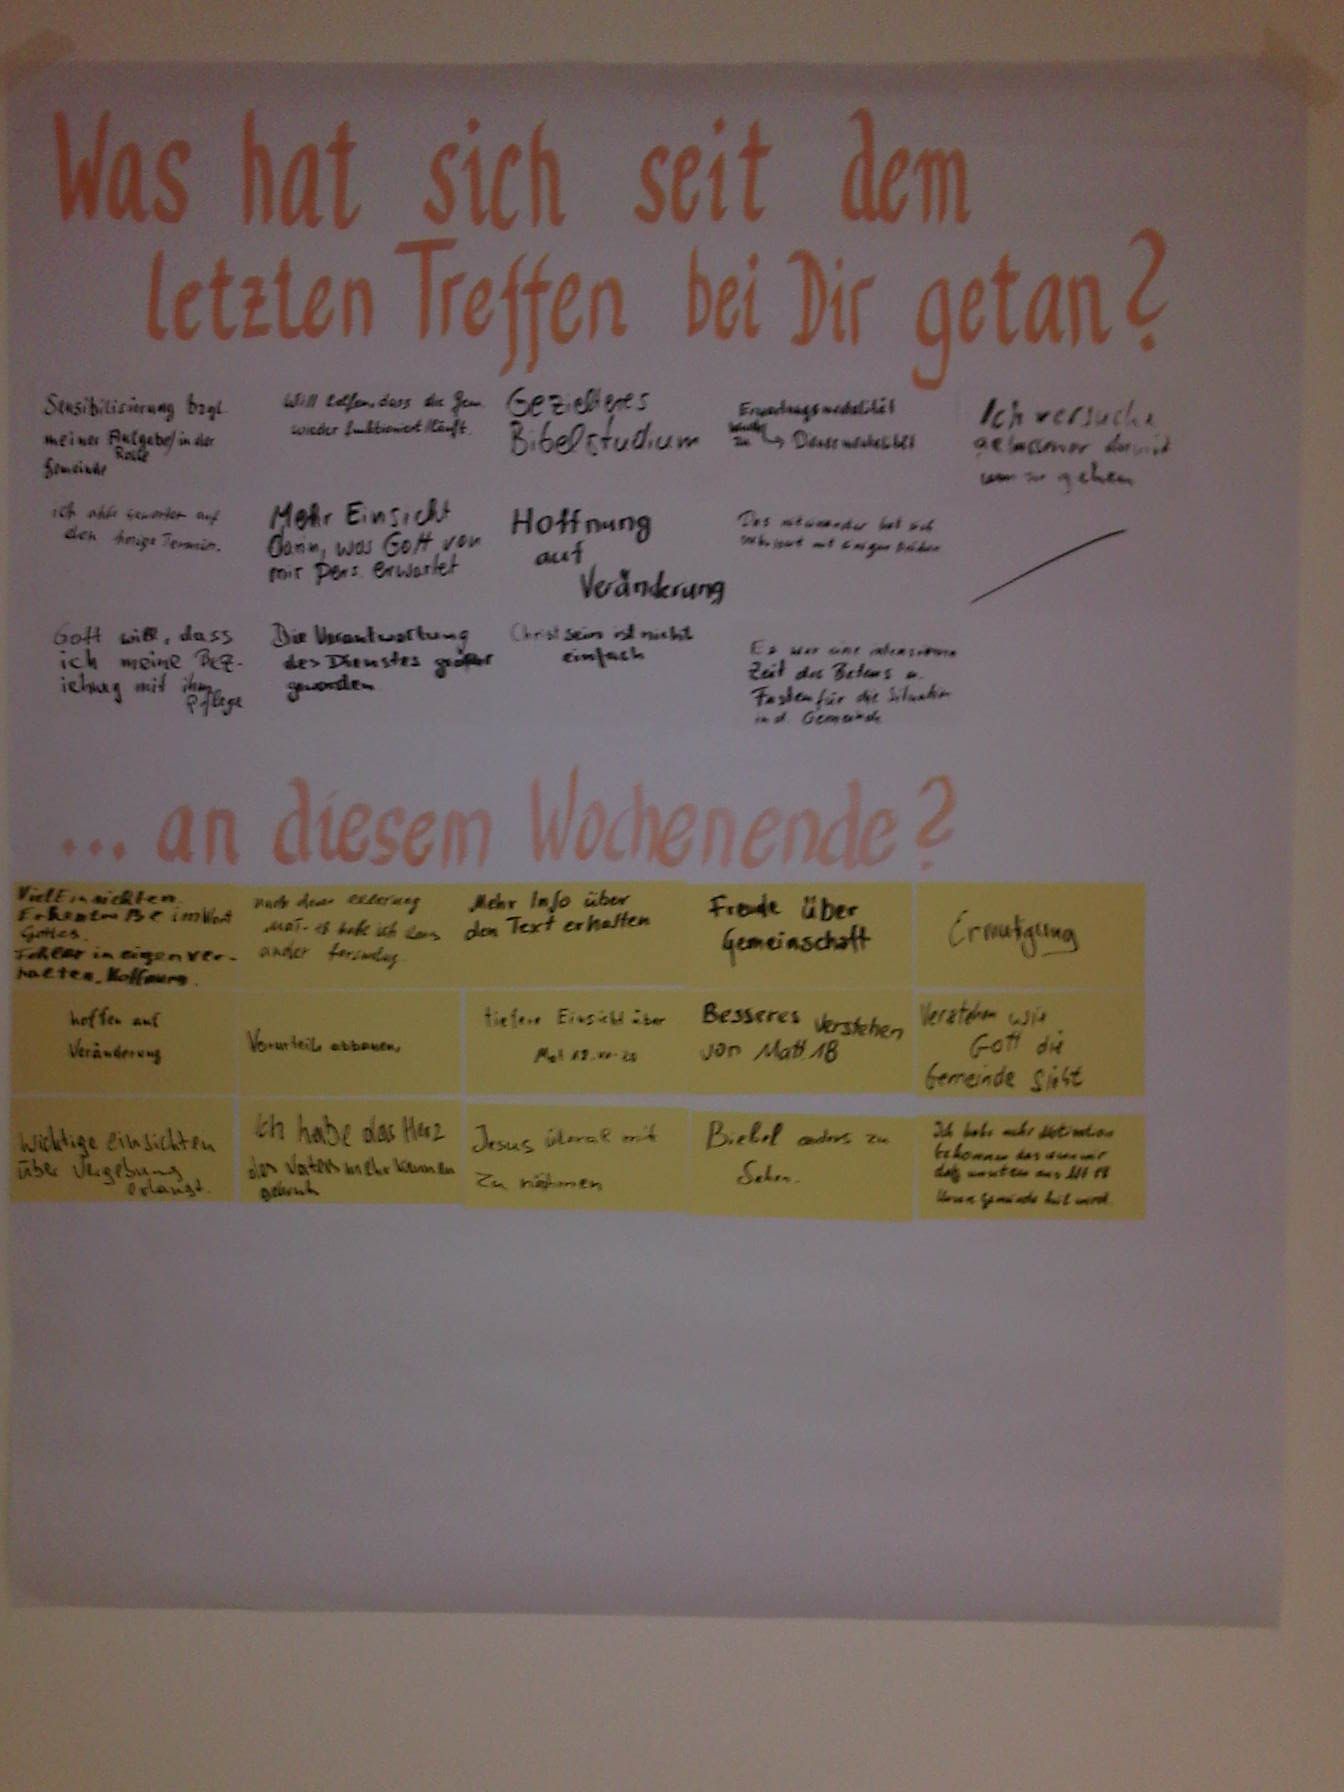 Was hat sich seit dem
letzten Treffen bei Dir getan?
Sensibilisierung bzgl.
meiner Aufgabe/in der
Rolle
Gemeinde
Will helfen, dass die Gem.
wieder funktioniert/läuft.
Gezielteres
Bibelstudium
Ich versuche
gelassener damit
um zu gehen
ich habe gewartet auf
den Termin.
Mehr Einsicht
darin, was Gott von
mir pers. erwartet
Hoffnung
auf
Veränderung
Das miteinander hat sich
mit einigen
Gott will, dass
ich meine Bez-
iehung mit ihm
pflege
Die Verantwortung
des Dienstes größer
geworden
Christ sein ist nicht
einfach
Es war eine intensivere
Zeit des Betens u.
Fasten für die Situation
in d. Gemeinde
... an diesem Wochenende?
Viel Einsichten.
im Wort
Gottes.
Fehler in eigen ver-
halten. Hoffnung.
nach dem
habe ich das
ander
Mehr Info über
den Text erhalten
Freude über
Gemeinschaft
Ermutigung
hoffen auf
Veränderung
Vorurteile abbauen.
tiefere Einsicht über
Besseres Verstehen
von Matt. 18
Verstehen wie
Gott die
Gemeinde sieht
Wichtige einsichten
über Vergebung
erlangt.
Ich habe das Herz
des Vaters mehr kennen
gelernt
Jesus überall mit
zu nehmen
Biebel anders zu
Sehen.
Ich habe mehr Motivation
bekommen das wenn wir
Unsere Gemeinde heil wird.